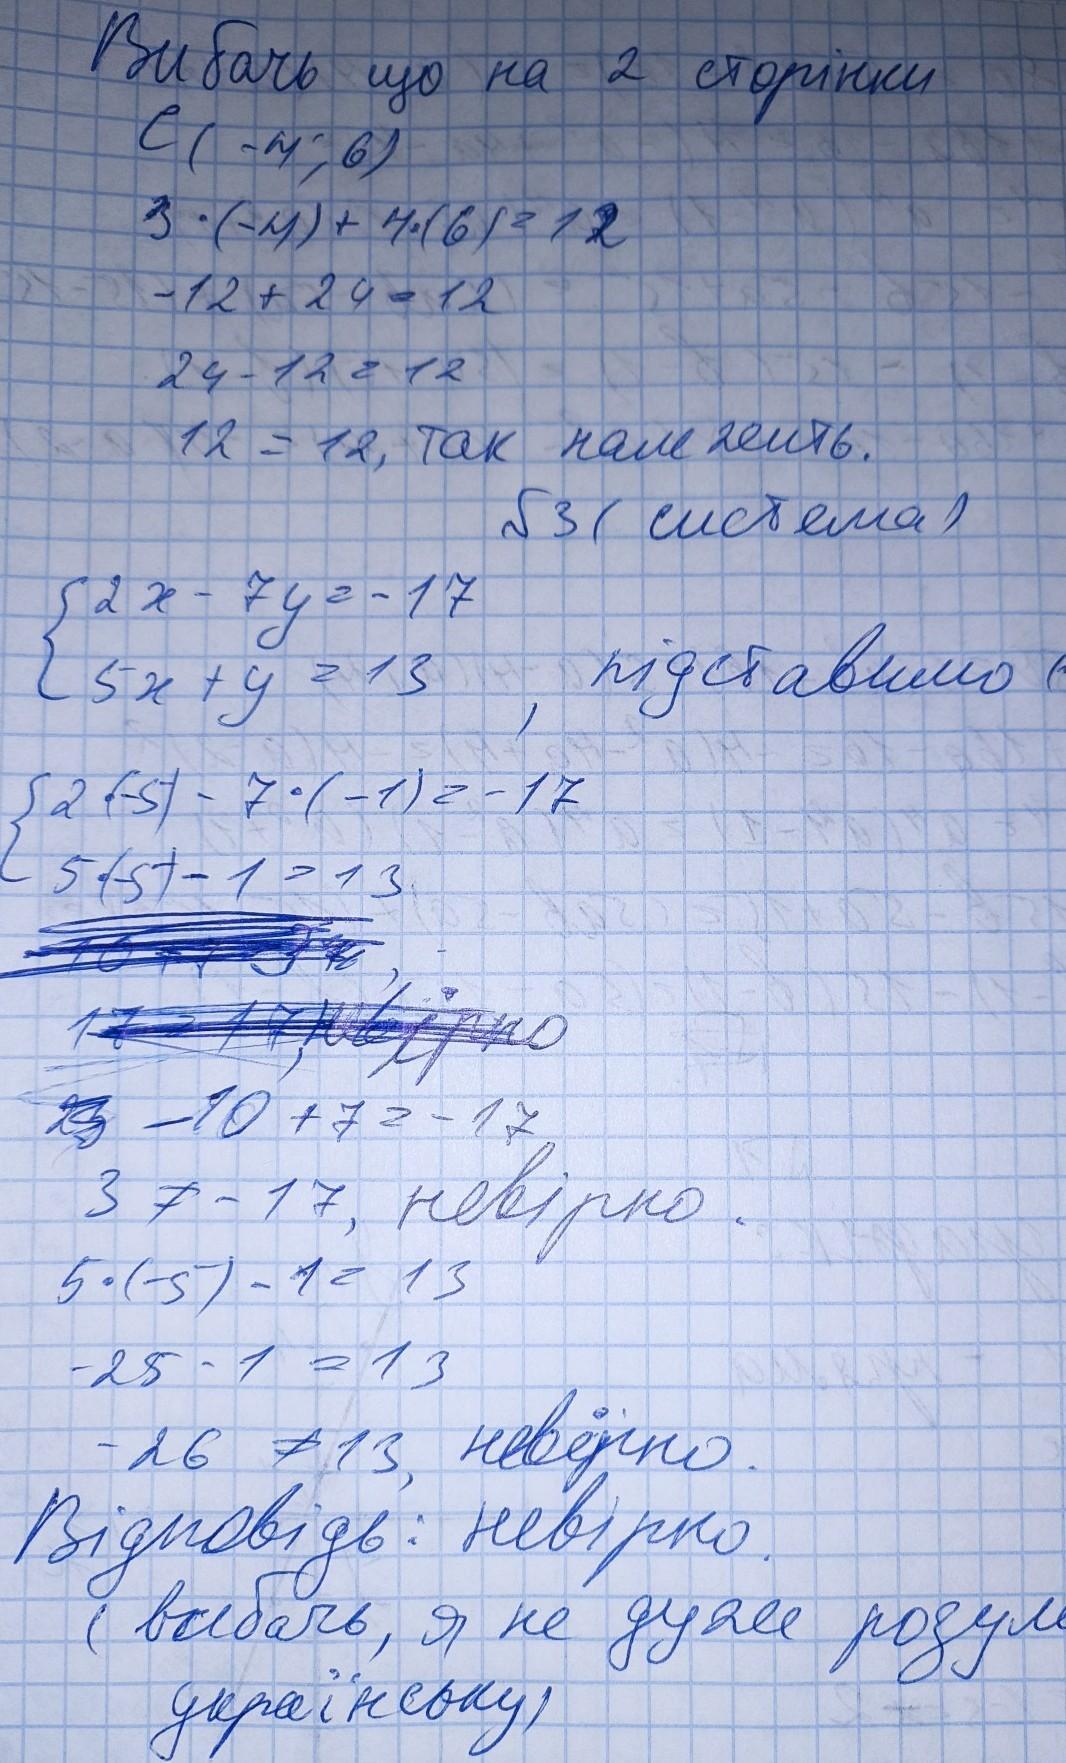 Вибачь що на 2 сторінки
C(-4; 6)
3·(-4)+4·(6)=12
-12+24=12
24-12=12
12=12, так належить.
№3(система)
{2x-7y=-17
5x+y=13, підставимо (
{2·(-5)-7·(-1)=-17
5·(-5)-1=13
17=17, невірно
-10+7=-17
3≠-17, невірно.
5·(-5)-1=13
-25-1=13
-26≠13, невірно.
Відповідь: невірно.
(вибачь, я не дуже розум
українську)